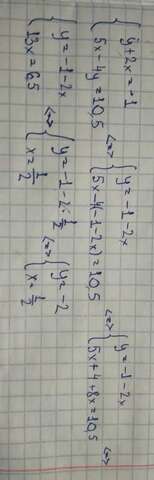 { y + 2x = -1
{ 5x - 4y = 10,5 <=> { y = -1 - 2x
{ 5x - 4(-1 - 2x) = 10,5 <=> { y = -1 - 2x
{ 5x + 4 + 8x = 10,5 <=>
{ y = -1 - 2x
{ 13x = 6,5 <=> { y = -1 - 2·1/2
{ x = 1/2 <=> { y = -2
{ x = 1/2